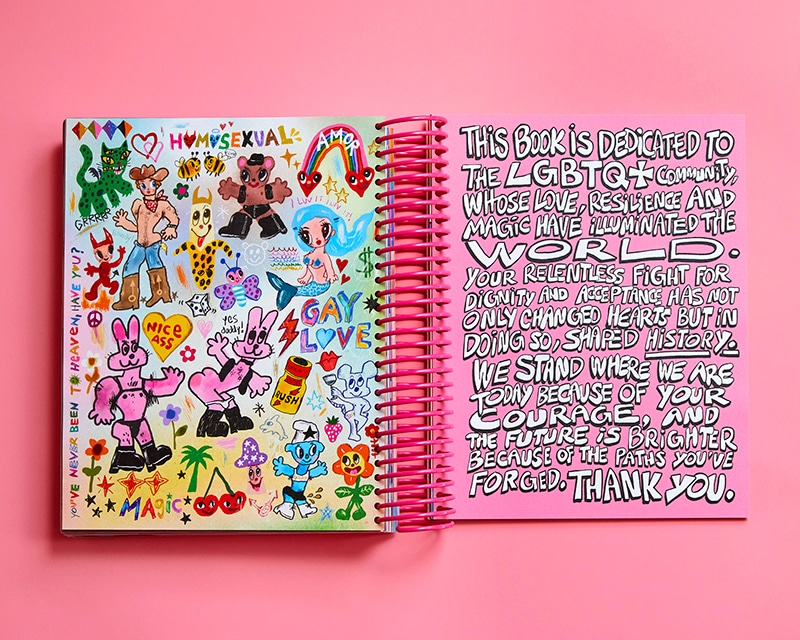 HOMOSEXUAL
AMOR
GRRRRR
YOU'VE NEVER BEEN TO HEAVEN, HAVE YOU?
$
GAY
LOVE
NICE
ASS
yes
daddy!
RUSH
MAGIC
THIS BOOK IS DEDICATED TO
THE LGBTQ+ COMMUNITY,
WHOSE LOVE, RESILIENCE AND
MAGIC HAVE ILLUMINATED THE
WORLD.
YOUR RELENTLESS FIGHT FOR
DIGNITY AND ACCEPTANCE HAS NOT
ONLY CHANGED HEARTS BUT IN
DOING SO, SHAPED HISTORY.
WE STAND WHERE WE ARE
TODAY BECAUSE OF YOUR
COURAGE, AND
THE FUTURE IS BRIGHTER
BECAUSE OF THE PATHS YOU'VE
FORGED. THANK YOU.